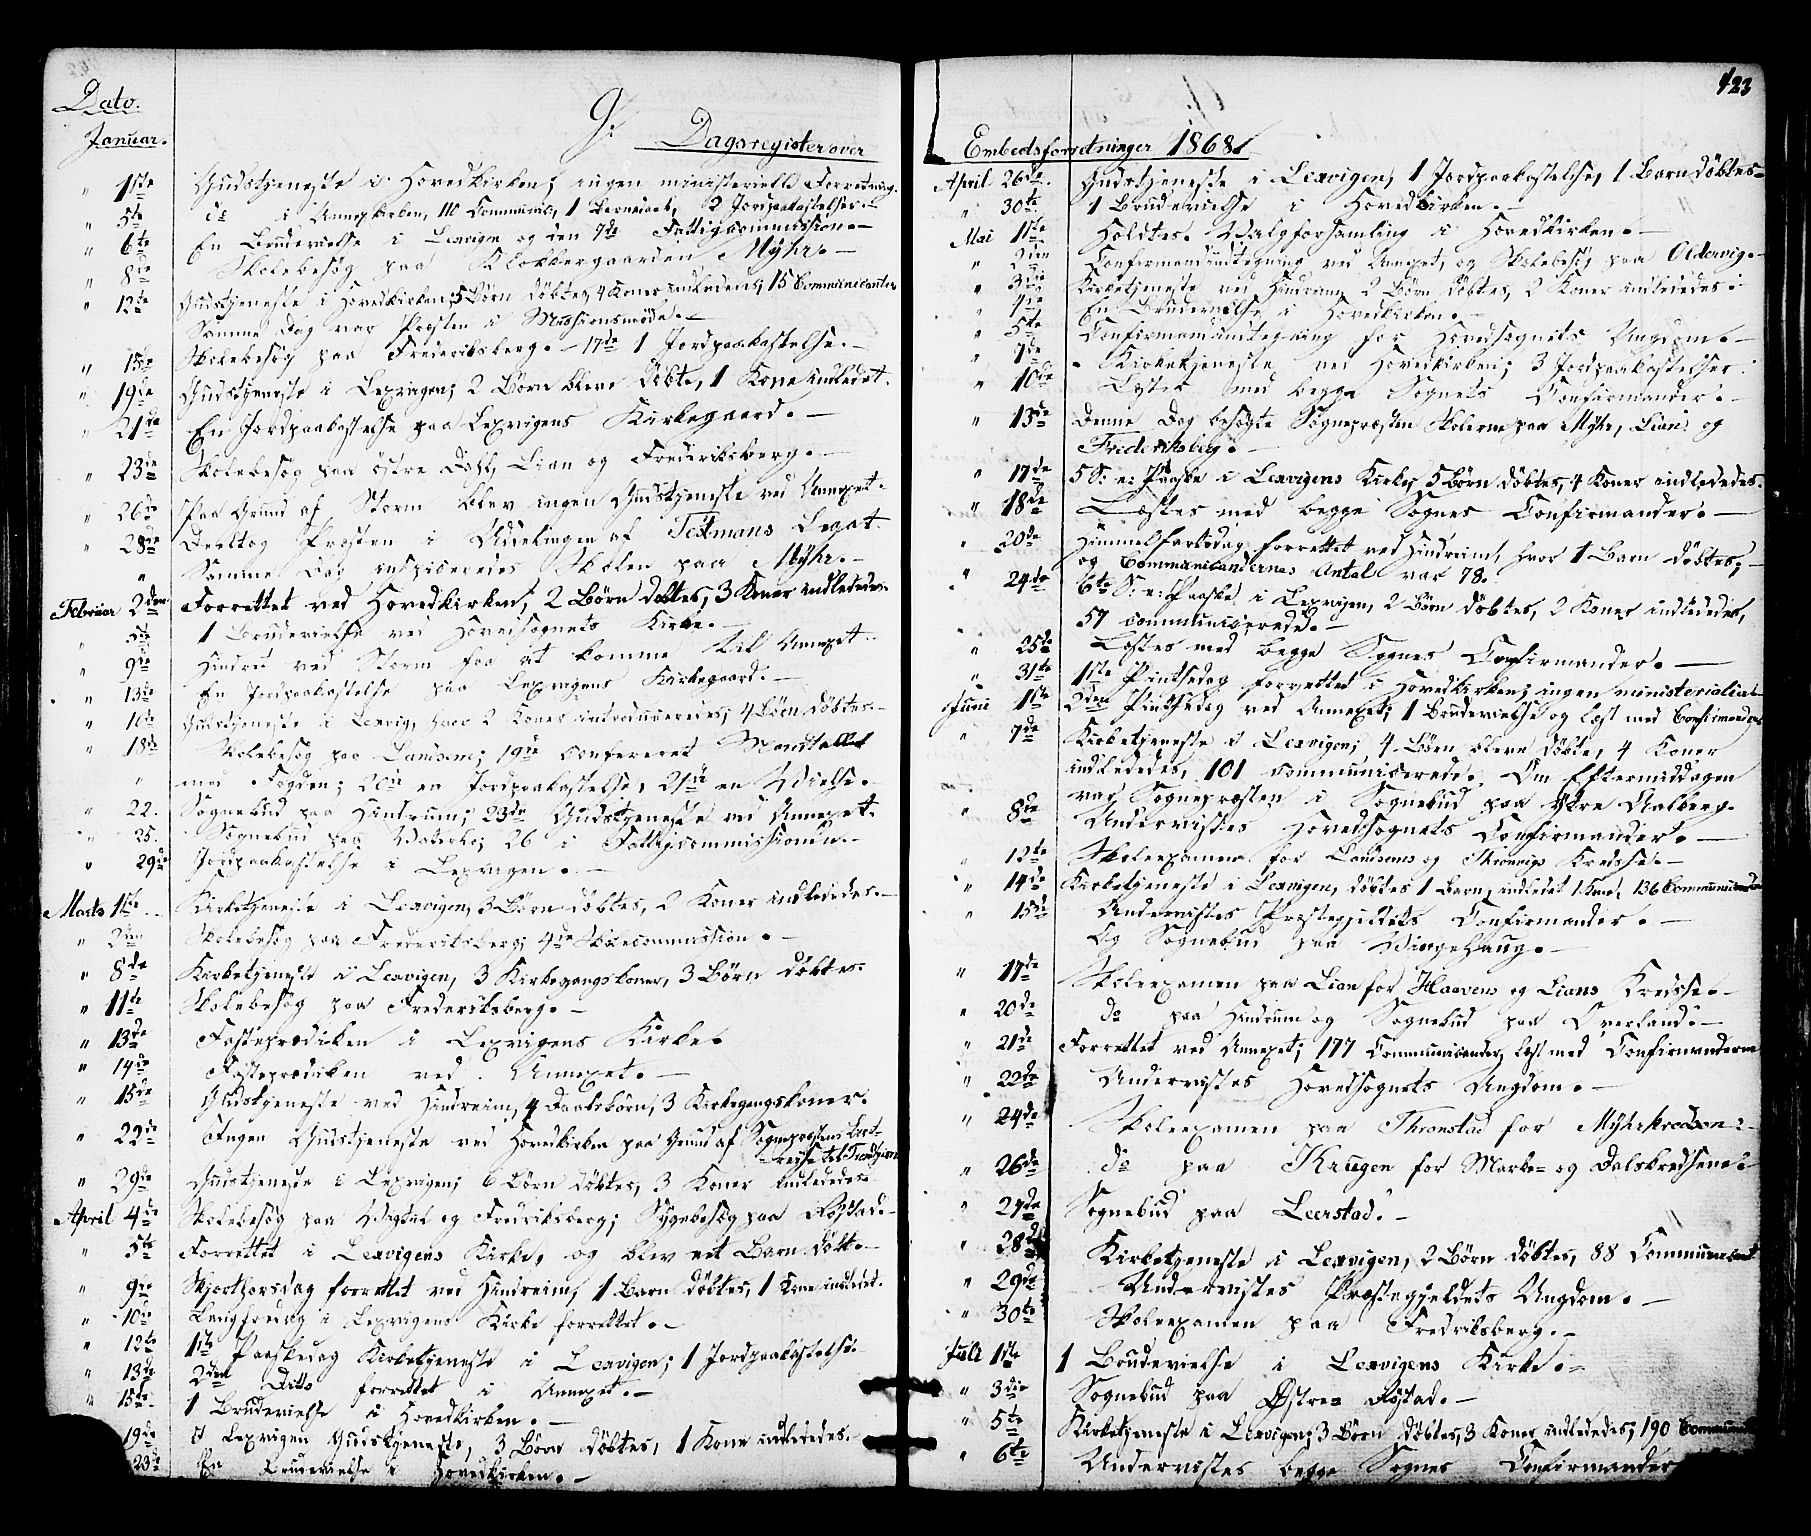 Dato.
Januar.
9:
Dagsregister over
" 1ste Gudstjeneste i Hovedkirken; ingen ministerielle Forretning.
" 5te do i Annexkirken, 1 Jordpaakastelse.
" 6te En Brudevielse i Lexvigen og den 7de Fattigcommission.—
" 8de Skolebesøg paa Klokkergaarden Myhr.—
" 12te Gudstjeneste i Hovedkirken; 5 Børn døbtes, 4 Koner indledede, 15 Communicanter
Samme Dag var Præsten i Missionsmøde.—
" 15de Skolebesøg paa Frederiksberg.— 17de 1 Jordpaakastelse.—
" 19de Gudstjeneste i Lexvigen; 2 Børn bleve døbte, 1 Kone indledet.
" 21de En Jordpaakastelse paa Lexvigens Kirkegaard.—
" 23de Skolebesøg paa østre Dahl, Lian og Frederiksberg.—
" 26de Paa Grund af Storm blev ingen Gudstjeneste ved Annexet.
" 28de Deeltog Præsten i Uddelingen af Testmans Legat
" Samme Dag inspiceredes Skolen paa Myhr.—
Februar 2den Forrettet ved Hovedkirken; 2 Børn døbtes; 3 Koner indlededes
" 5te 1 Brudevielse ved Hovedsognets Kirke.—
" 9de Hindret ved Storm fra at komme til Annexet.
" 13de En Jordpaakastelse paa Lexvigens Kirkegaard.—
" 16de Gudstjeneste i Lexvig, hvor 2 Koner introduceredes; 4 Børn døbtes.—
" 18de Skolebesøg paa Lamsem; 19de confereret Mandtallet
" med Fogden; 20de en Jordpaakastelse, 21de en Vielse.—
" 22. Sognebud paa Hindrum; 23de Gudstjeneste ved Annexet.
" 25. Sognebud paa 26 i Fattigcommissionen.—
" 29de Jordpaakastelse i Lexvigen.—
Marts 1ste Kirketjeneste i Lexvigen, 3 Børn døbtes, 2 Koner indlededes.—
" 2den Skolebesøg paa Frederiksberg; 4de Skolecommission.—
" 8de Kirketjeneste i Lexvigen, 3 Kirkegangskoner, 3 Børn døbtes.
" 11te Skolebesøg paa Frederiksberg.—
" 13de Fasteprædiken i Lexvigens Kirke.
" 14de Fasteprædiken ved Annexet.—
" 15de Gudstjeneste ved Hindreim, 4 Daabsbørn, 3 Kirkegangskoner.
" 22de Ingen Gudstjeneste ved Hovedkirken paa Grund af Sognepræstens Bort-
reise til Trondhjem
" 29de Gudstjeneste i Lexvigen; 6 Børn døbtes, 3 Koner indlededes
April 4de Skolebesøg paa Vigtil og Fredriksberg; Sygebesøg paa Røstad.—
" 5te Forrettet i Lexvigens Kirke, og blev eet Barn døbt.—
" 9de Skjærthorsdag forrettet ved Hindreim, 1 Barn døbtes, 1 Kone indledet.
" 10de Langfredag i Lexvigens Kirke forrettet.—
" 12te 1ste Paaskedag Kirketjeneste i Lexvigen; 1 Jordpaakastelse.
" 13de 2den Dito forrettet i Annexet.—
" 15de 1 Brudevielse i Hovedkirken.—
19de I Lexvigen Gudstjeneste, 3 Børn døbtes, 1 Kone indlededes.
23de En Brudevielse i Hovedkirken.—
423
Embedsforretninger 1868.
April 26de Gudstjeneste i Lexvigen, 1 Jordpaakastelse, 1 Barn døbtes—
" 30te 1 Brudevielse i Hovedkirken.—
Mai 1ste Holdtes Valgforsamling i Hovedkirken.—
" 2den Confirmandindtegning ved Annexet, og Skolebesøg paa Oldervig.—
" 3die Kirketjeneste ved Hindreim, 2 Børn døbtes, 2 Koner indlededes.—
" 4de En Brudevielse i Hovedkirken.—
" 5te Confirmandindtegning for Hovedsognets Ungdom.—
" 7de Kirketjeneste ved Hovedkirken; 3 Jordpaakastelser.
" 10de Læstes med begge Sognets Confirmander.—
" 13de Denne Dag besøgte Sognepræsten Skolerne paa Myhr, Lian og
Frederiksberg.—
" 17de 5 S: e: Paaske i Lexvigens Kirke, 5 Børn døbtes, 4 Koner indlededes.
" 18de Læstes med begge Sognes Confirmander.—
" 20de Himmelfartsdag forrettet ved Hindreim, hvor 1 Barn døbtes;
og Communicanternes Antal var 78.
" 24de 6te S: e: Paaske i Lexvigen, 2 Børn døbtes, 2 Koner indlededes,
57 communicerede.—
" 25de Læstes med begge Sognes Confirmander.—
" 31te 1ste Pintsedag forrettet i Hovedkirken; ingen ministerialia
Juni 1ste 2den Pintsedag ved Annexet; 1 Brudevielse og læst med Confirmander
" 7de Kirketjeneste i Lexvigen; 4 Børn bleve døbte, 4 Koner
indlededes, 101 communicerede. Om Eftermiddagen
var Sognepræsten i Sognebud paa Ytre Aalberg.
" 8de Undervistes Hovedsognets Confirmander.—
" 12te Skoleexamen for Lamsems og Thronvigs Kredse.—
" 14de Kirketjeneste i Lexvigen, døbtes 1 Barn, indledet 1 Kone, 136 Communicanter
" 15de Undervistes Præstegjeldets Confirmander.—
Og Sognebud paa Vingehaug.—
" 17de Skoleexamen paa Lian for Haavens og Lians Kredse.—
" 20de do paa Hindrum og Sognebud paa Overland.—
" 21de Forrettet ved Annexet; 177 Communicanter, læst med Confirmanderne
" 22de Undervistes Hovedsognets Ungdom.—
" 24de Skoleexamen paa Thronstad for Myhrkredsen.—
" 26de do paa Krugen for Marke- og Dalskredsene.—
" 27de Sognebud paa Leerstad.—
" 28de Kirketjeneste i Lexvigen, 2 Børn døbtes, 88 Communicant.
" 29de Undervistes Præstegjeldets Ungdom.—
" 30te Skoleexamen paa Fredriksberg.—
Juli 1ste 1 Brudevielse i Lexvigens Kirke.—
" 3die Sognebud paa Østre Røstad.—
" 5te Kirketjeneste i Lexvigen; 3 Børn døbtes, 3 Koner indlededes; 190 Communic
" 6te Undervistes begge Sognes Confirmander